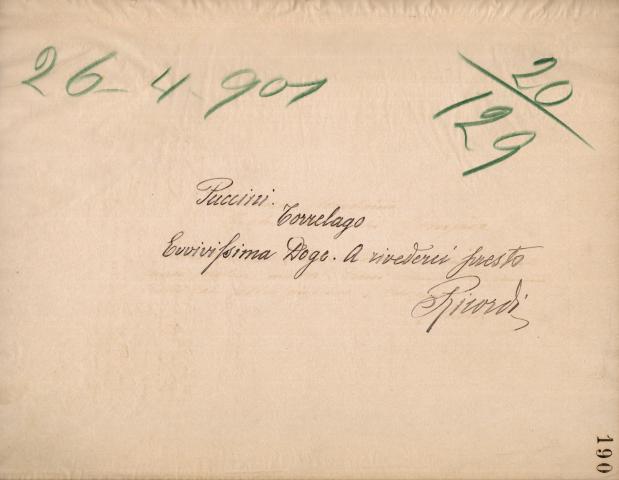 26-4-901
20/129
Puccini.
Torrelago
Evvivissima Doge. A rivederci presto
Ricordi
190